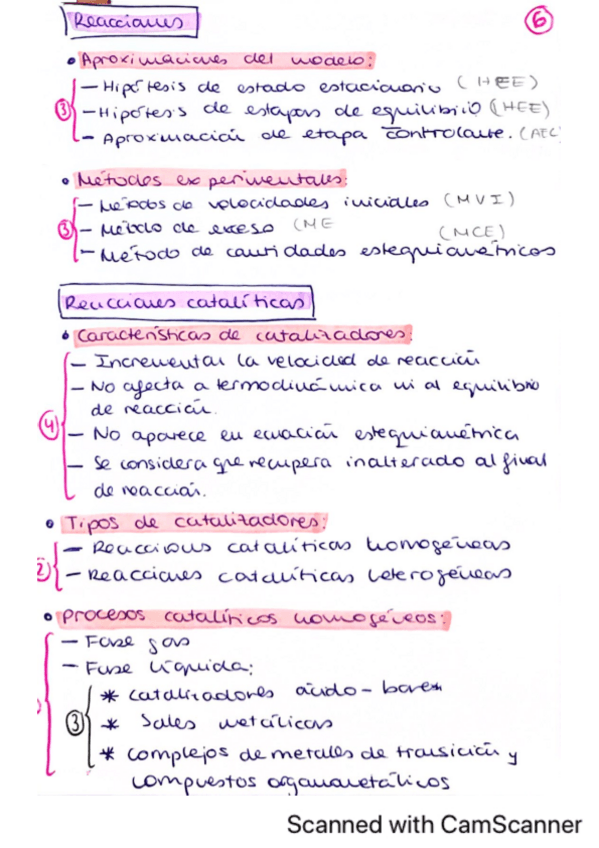 Reacciones
6
• Aproximaciones del modelo:
③ - Hipótesis de estado estacionario (HEE)
- Hipótesis de etapas de equilibrio (HEE)
- Aproximación de etapa controlante. (AEC)
• Métodos experimentales:
③ - Métodos de velocidades iniciales (MVI)
- Método de exceso (ME
(MCE)
- Método de cantidades estequiométricos
Reacciones catalíticas
• Características de catalizadores:
④ - Incrementar la velocidad de reacción
- No afecta a termodinámica ni al equilibrio
de reacción.
- No aparece en ecuación estequiométrica
- Se considera que recupera inalterado al final
de reacción.
• Tipos de catalizadores:
② - Reacciones catalíticas homogéneas
- Reacciones catalíticas heterogéneas
• Procesos catalíticos homogéneos:
- Fase gas
- Fase líquida:
③ * catalizadores ácido-bases
* Sales metálicas
* complejos de metales de transición y
compuestos organometálicos
Scanned with CamScanner